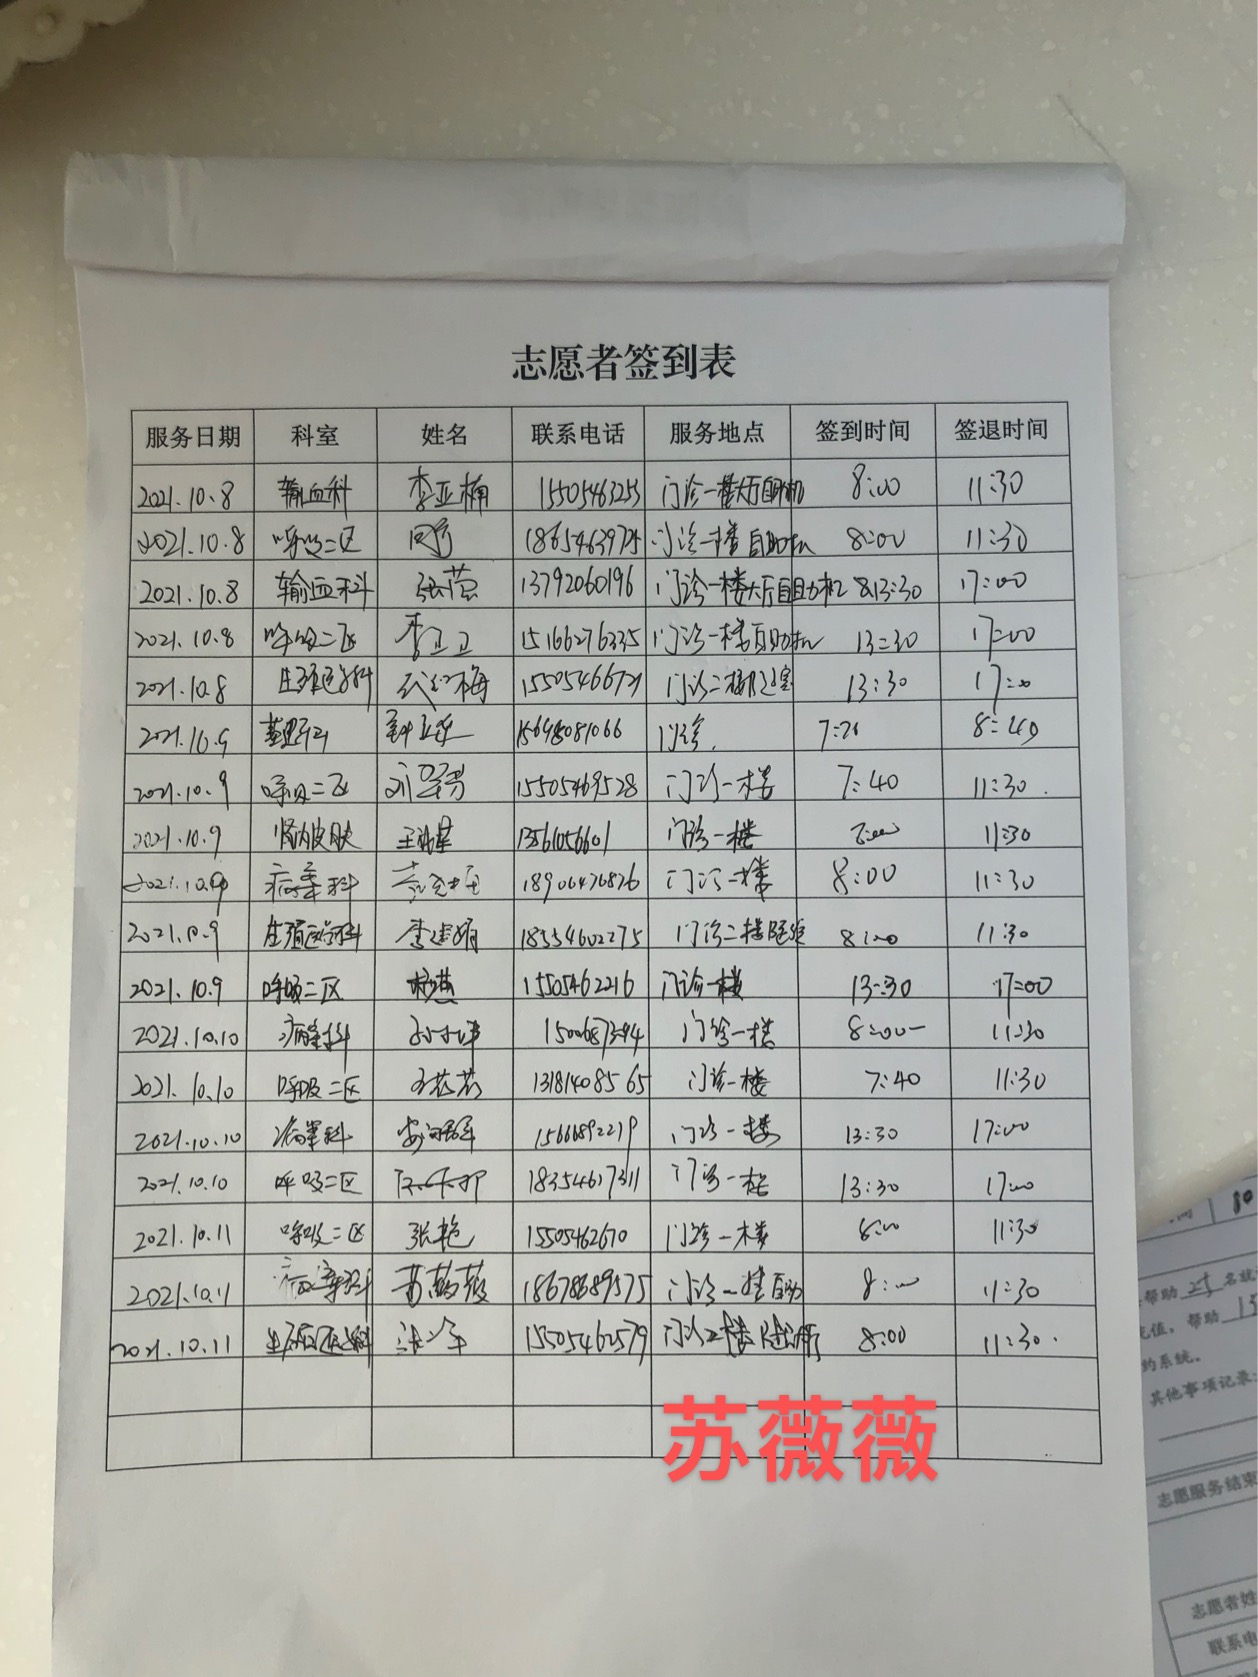 志愿者签到表
服务日期 科室 姓名 联系电话 服务地点 签到时间 签退时间
2021.10.8 输血科 李亚楠 15505463253 门诊一楼大厅自助机 8:00 11:30
2021.10.8 呼吸二区 18654639725 门诊一楼自助机 8:00 11:30
2021.10.8 输血科 张蕊 13792060196 门诊一楼大厅自助机 13:30 17:00
2021.10.8 呼吸二区 李卫卫 15166276335 门诊一楼自助机 13:30 17:00
2021.10.8 生殖医学科 15505466721 门诊二楼 13:30 17:00
2021.10.9 15698081066 门诊 7:20 8:40
2021.10.9 呼吸二区 15505469528 门诊一楼 7:40 11:30.
2021.10.9 肾内皮肤 13561056601 门诊一楼 11:30
2021.10.9 病案科 18906476826 门诊一楼 8:00 11:30
2021.10.9 生殖医学科 李建娟 18554602275 门诊二楼 8:00 11:30
2021.10.9 呼吸二区 15505462216 门诊一楼 13:30 17:00
2021.10.10 病案科 门诊一楼 8:00 11:30
2021.10.10 呼吸二区 13181408565 门诊一楼 7:40 11:30
2021.10.10 病案科 15666892219 门诊一楼 13:30 17:00
2021.10.10 呼吸二区 18354617311 门诊一楼 13:30 17:00
2021.10.11 呼吸二区 张艳 15505462670 门诊一楼 8:00 11:30
2021.10.11 病案科 苏薇薇 18678689575 门诊一楼自助 8:00 11:30
2021.10.11 生殖医学科 15505462579 门诊二楼 8:00 11:30.
苏薇薇
帮助
名就
充值，帮助
约系统。
其他事项记录:
志愿服务结束
志愿者姓
联系电